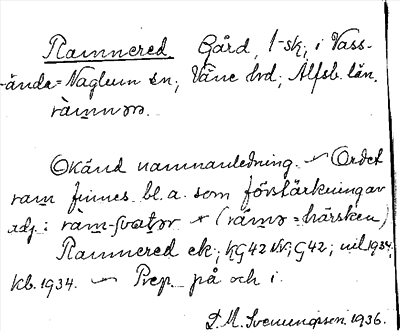 Ramnered Gård, 1 sk; i Vass-
-ända-Naglum sn; Väne hd, Älfsb. län.
ràmnər.
Okänd namnanledning. – Ordet
ram finnes bl.a. som förstärkning av
adj: ràm-svatər * (ràmə-härsken)
Ramnered ek; KG42 NV; G42; vil 1934;
kb. 1934. – Prep. på och i.
D. M. Svenungsson 1936.